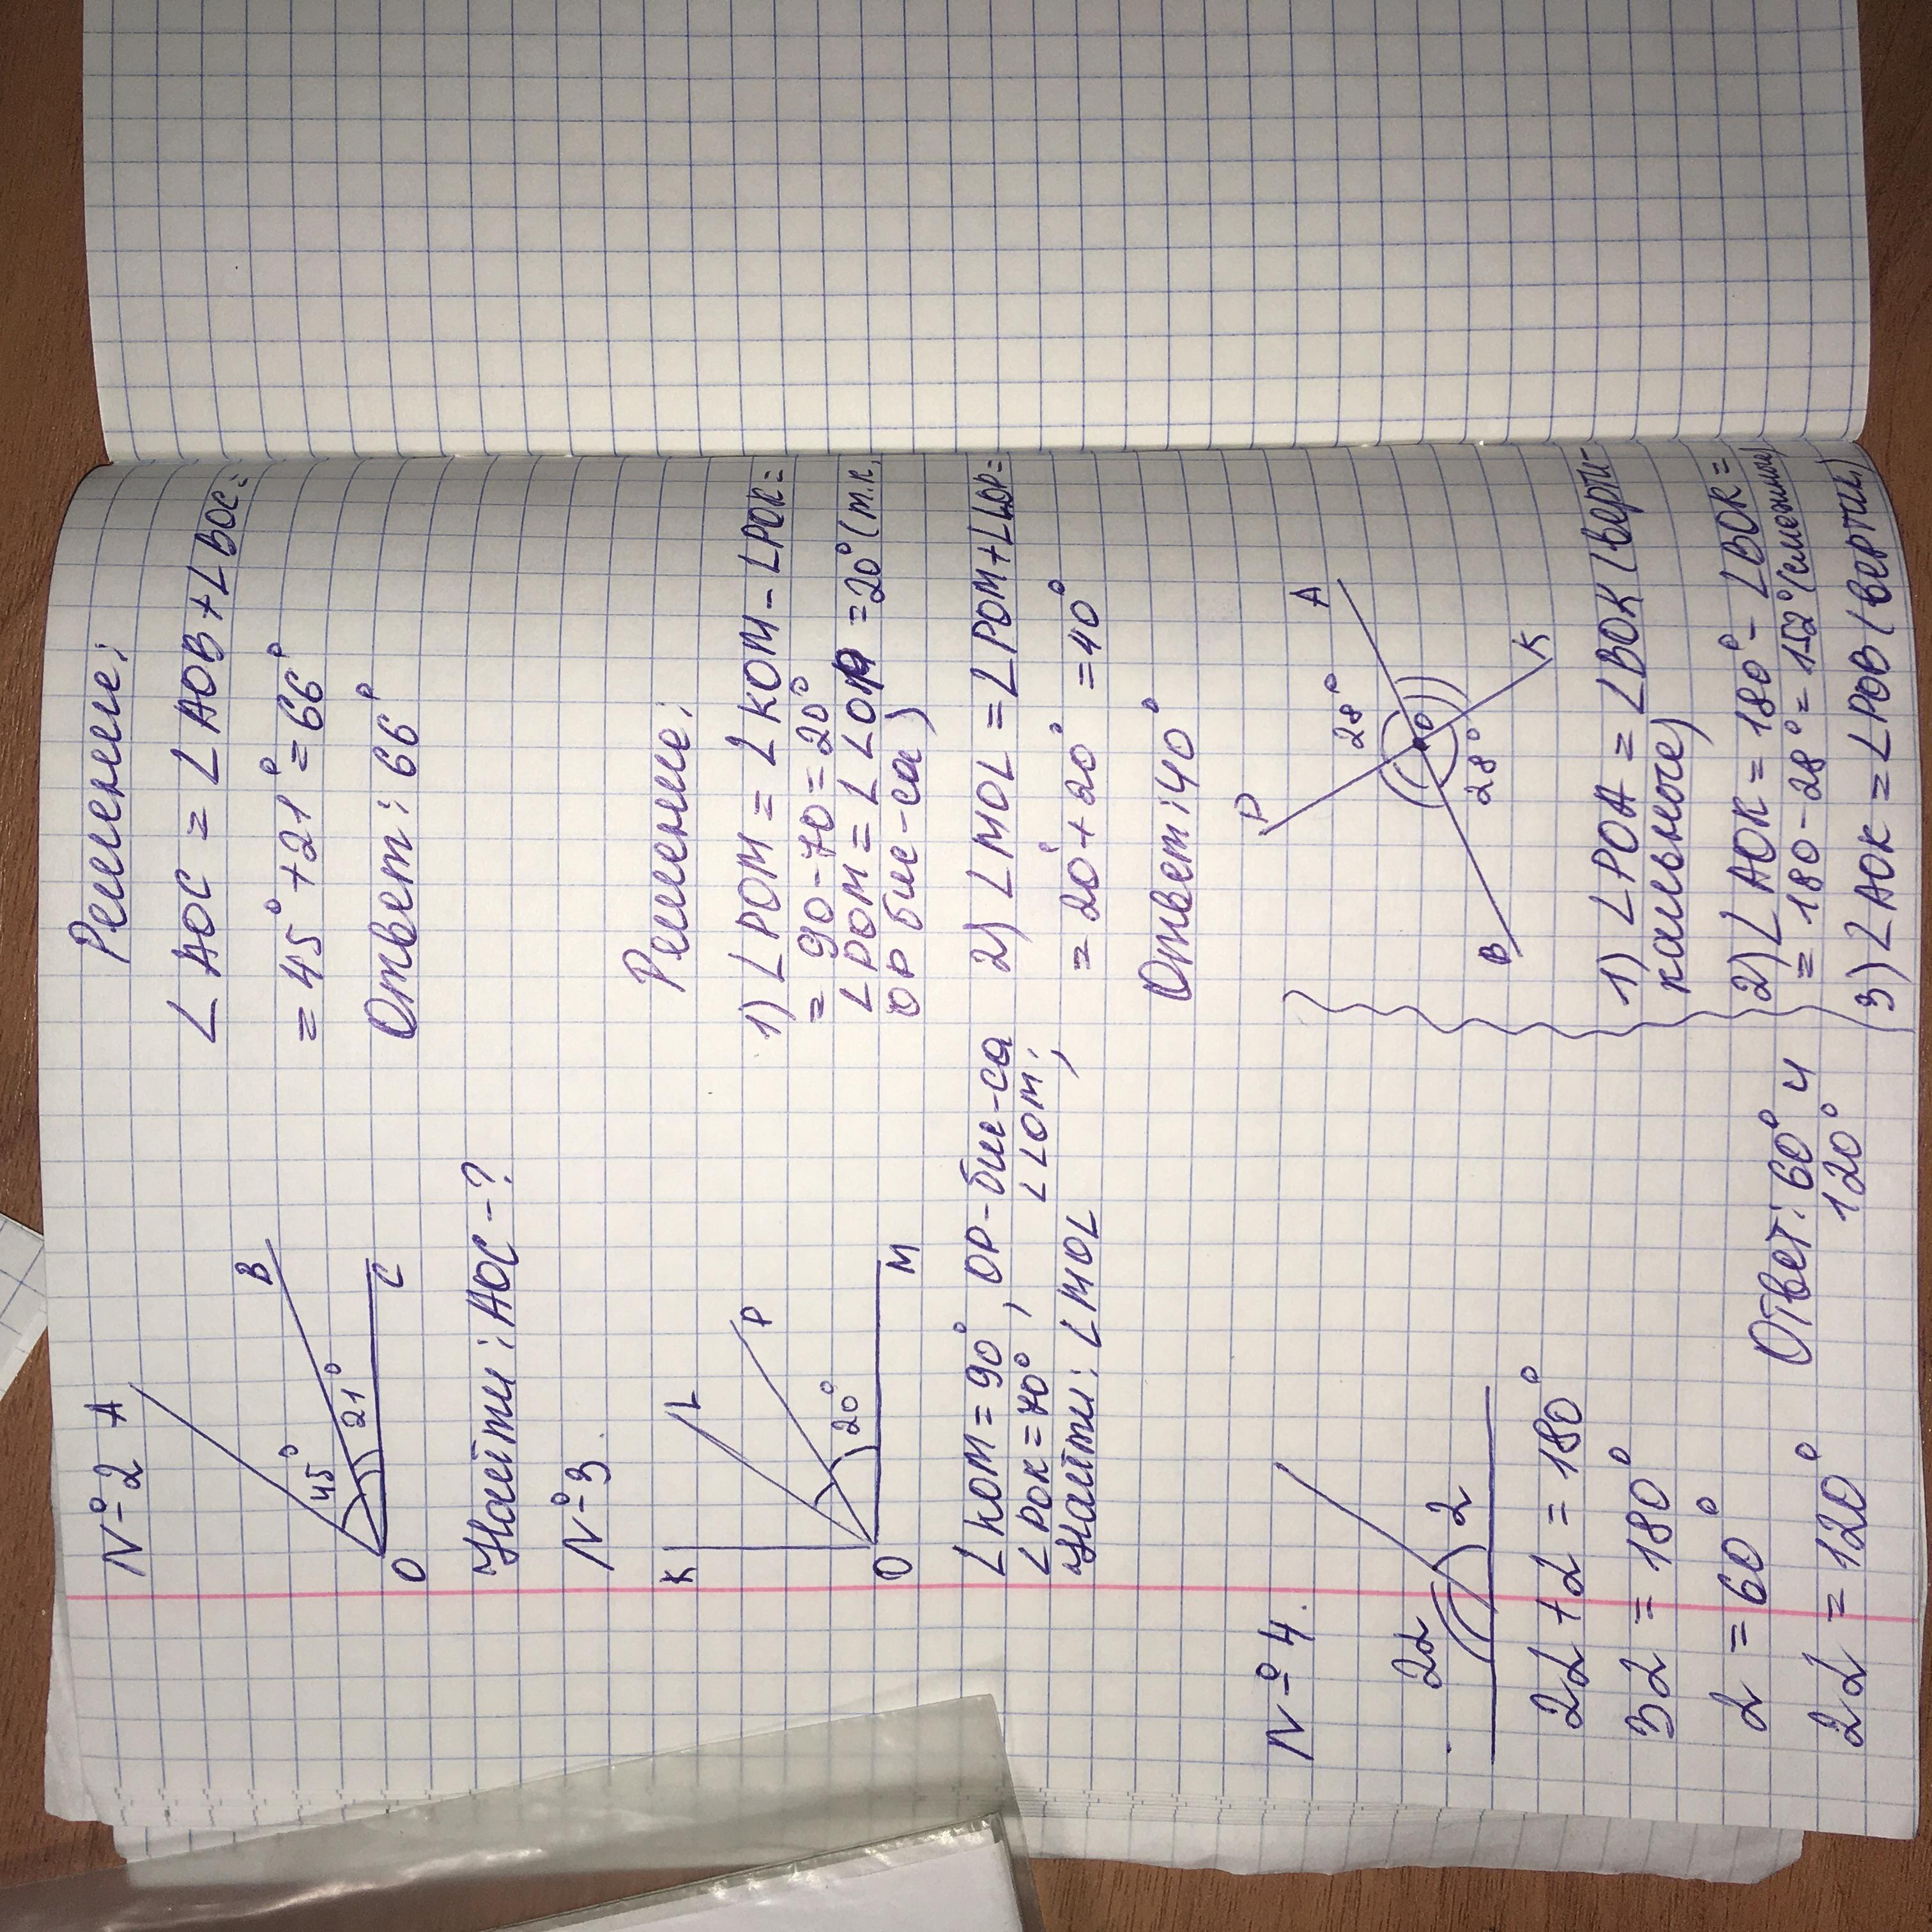 №2
A
B
45°
21°
O
C
Найти: AOC-?
Решение:
∠AOC = ∠AOB+∠BOC=
= 45°+21°=66°
Ответ: 66°
№3.
K
L
P
20°
O
M
∠KOM=90°, OP-бис-са
∠POK=70° ∠LOM;
Найти: ∠MOL
Решение:
1) ∠POM = ∠KOM-∠POK=
= 90-70=20°
∠POM=∠LOP =20°(т.к.
OP бис-са)
2) ∠MOL=∠POM+∠LOP=
= 20°+20°=40°
Ответ: 40°
№4.
2α
α
2α+α=180°
3α=180°
α=60°
2α=120°
Ответ: 60° и
120°
P
A
28°
O
28°
B
K
1) ∠POA=∠BOK (верти-
кальные)
2) ∠AOK=180°-∠BOK=
=180-28°=152°(смежные)
3) ∠AOK=∠POB (вертик)